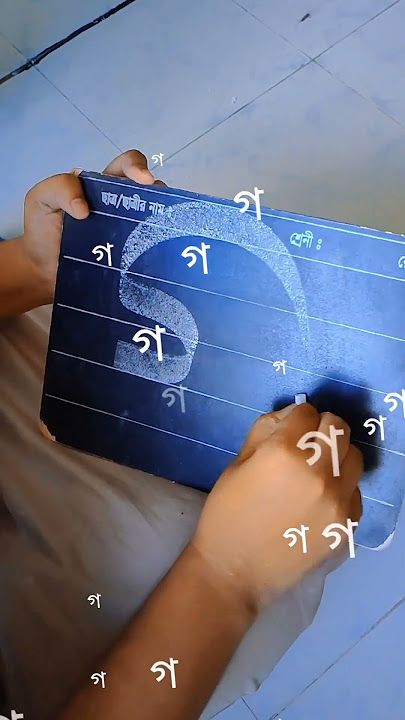 গ
ছাত্র/ছাত্রীর নাম :
গ
শ্রেণী :
গ
গ
গ
গ
গ
গ
গ
গ
গ
গ
গ
গ
গ
গ